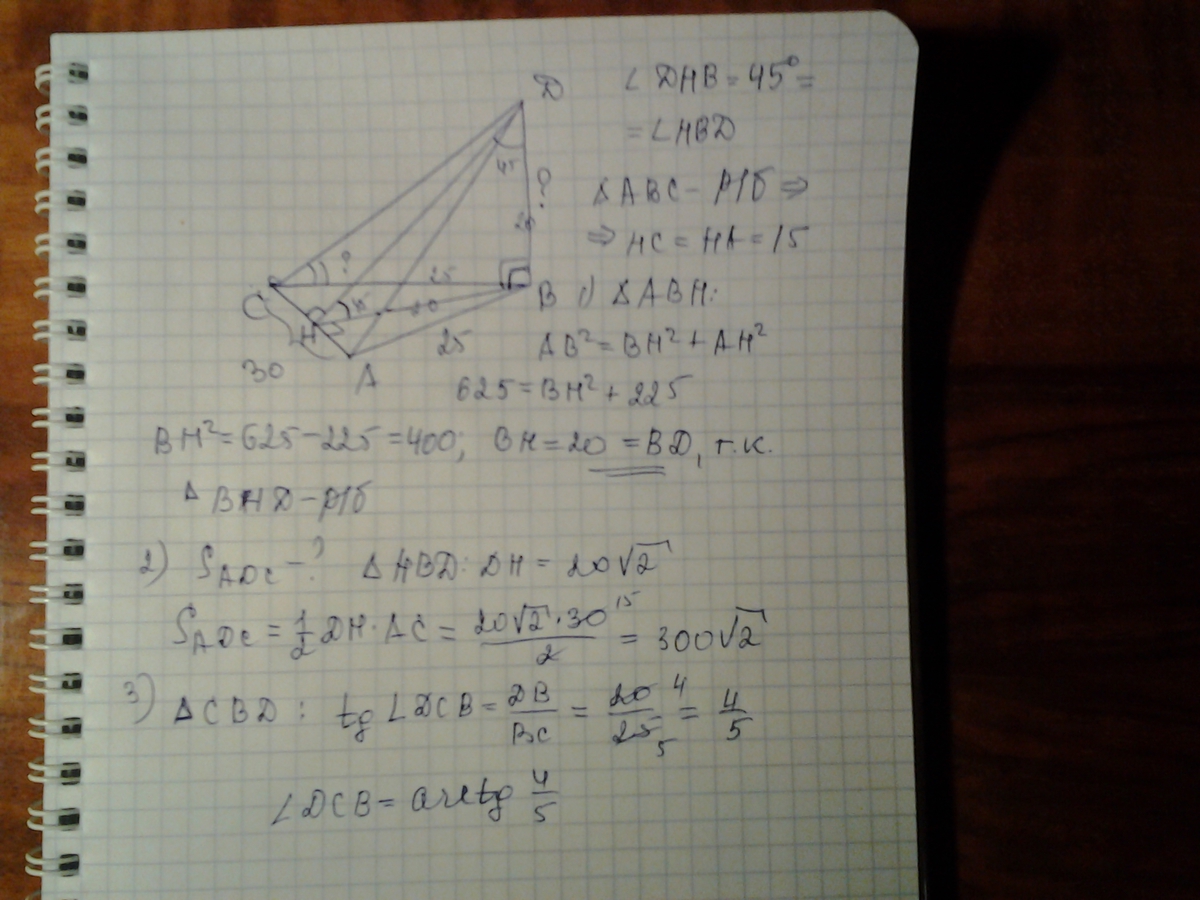 D
∠ DHB = 45° =
= ∠HBD
45
?
20
Δ ABC - р/б ⇒
⇒ HC = HA = 15
?
25
C
H
20
B
1) Δ ABH:
30
A
25
AB² = BH² + AH²
625 = BH² + 225
BH² = 625 - 225 = 400; BH = 20 = BD, т.к.
Δ BHD - р/б
2) S_ADC - ? Δ HBD: DH = 20√2
S_ADC = 1/2 DH · AC = 20√2 · 30 15 / 2 = 300√2
3) Δ CBD : tg ∠DCB = DB/BC = 20 4 / 25 5 = 4/5
∠DCB = arctg 4/5